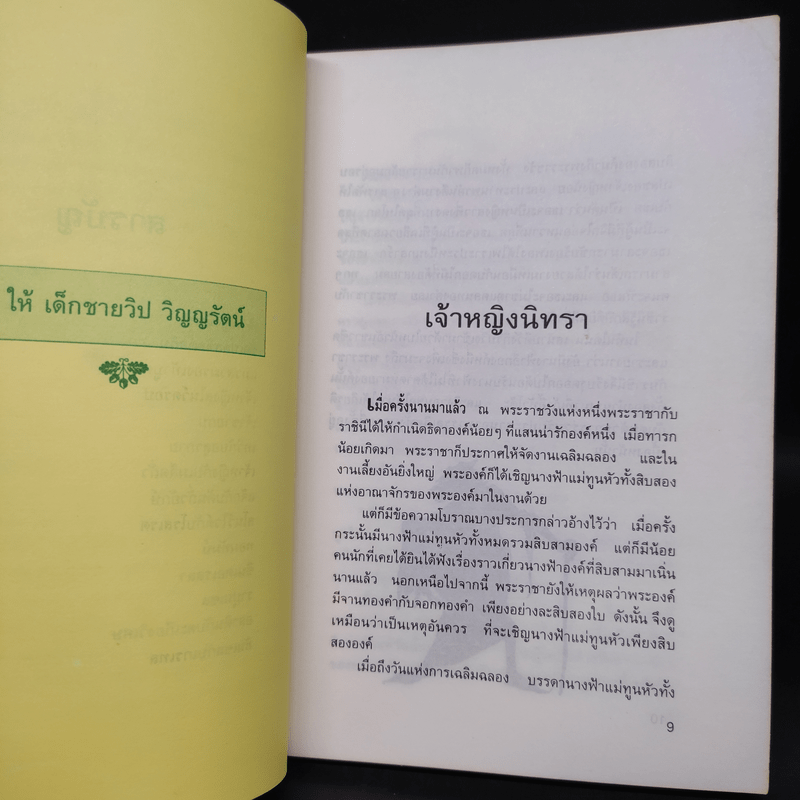 ให้ เด็กชายวิป วิญญรัตน์
เจ้าหญิงนิทรา
เมื่อครั้งนานมาแล้ว ณ พระราชวังแห่งหนึ่งพระราชากับ
ราชินีได้ให้กำเนิดธิดาองค์น้อยๆ ที่แสนน่ารักองค์หนึ่ง เมื่อทารก
น้อยเกิดมา พระราชาก็ประกาศให้จัดงานเฉลิมฉลอง และใน
งานเลี้ยงอันยิ่งใหญ่ พระองค์ก็ได้เชิญนางฟ้าแม่ทูนหัวทั้งสิบสอง
แห่งอาณาจักรของพระองค์มาในงานด้วย
แต่ก็มีข้อความโบราณบางประการกล่าวอ้างไว้ว่า เมื่อครั้ง
กระนั้นมีนางฟ้าแม่ทูนหัวทั้งหมดรวมสิบสามองค์ แต่ก็มีน้อย
คนนักที่เคยได้ยินได้ฟังเรื่องราวเกี่ยวนางฟ้าองค์ที่สิบสามมาเนิ่น
นานแล้ว นอกเหนือไปจากนี้ พระราชายังให้เหตุผลว่าพระองค์
มีจานทองคำกับจอกทองคำ เพียงอย่างละสิบสองใบ ดังนั้น จึงดู
เหมือนว่าเป็นเหตุอันควร ที่จะเชิญนางฟ้าแม่ทูนหัวเพียงสิบ
สององค์
เมื่อถึงวันแห่งการเฉลิมฉลอง บรรดานางฟ้าแม่ทูนหัวทั้ง
9